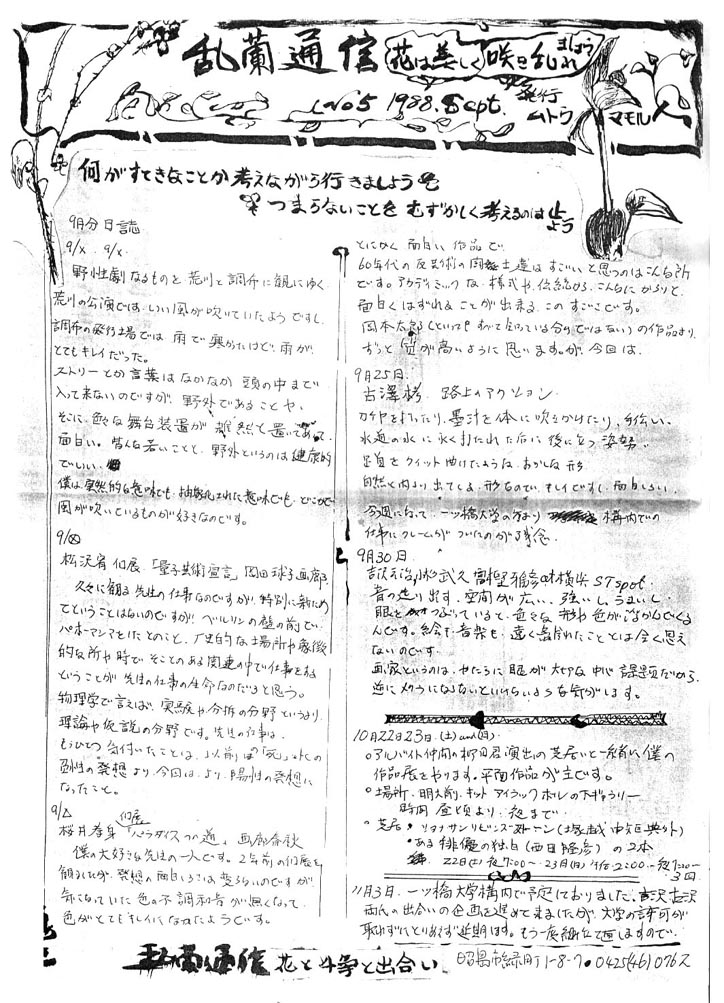 乱蘭通信 花は美しく咲き乱れましょう
No5 1988. Sept. 発行 ムトウ マモル
何がすてきなことか考えながら行きましょう
つまらないことをむずかしく考えるのは止よう
9月分日誌
9/x. 9/x.
野性劇なるものを荒川と調布に観にゆく
荒川の公演では、いい風が吹いていたようですし、
調布の飛行場では雨で寒かったけど、雨が
とてもキレイだった。
ストリーとか言葉はなかなか頭の中まで
入って来ないのですが、野外であることや、
そこに、色々な舞台装置が雑然と置いてあって
面白い。皆んな若いことと、野外というのは健康的
でいい。
僕は突然的な意味でも、抽象化された意味でも、どこかで
風が吹いているものが好きなのです。
松沢宥個展、「量子芸術宣言」岡田球子画廊
久々に観る先生の仕事なのですが、特別に新ため
てということはないのですが、ベルリンの壁の前で
パホーマンスをしたとのこと、
的な所や時で、そことのある関連の中で仕事をする
ということが先生の仕事の生命なのだと思う。
物理学で言えば、実験や分析の分野というより、
理論や仮説の分野です。先生の仕事は、
もうひとつ気付いたことは、以前は「死」
陰性の発想より、今回は、より陽性の発想に
なったこと。
9/△ 個展
桜井孝身「パラダイスへの道」画廊春秋
僕の大好きな先生の一人です。2年前の個展も
観ましたが、発想の面白いさは変らないのですが
気になっていた色の不調和音が無くなって、
色がとてもキレイになったようです。
とにかく面白い作品で
60年代の反芸術の闘士達はすごいと思うのはこんな所
です。アカデミックな様式や、伝統から、こんなにかろりと、
面白くはずれることが出来る、このすごさです。
岡本太郎(といってもすべて知っている分けではない)の作品より、
ずっと位が高いように思いますが、今回は。
9月25日.
古澤栲 路上のアクション
ガチャを打ったり、墨汁を体に吹きかけたり、
水道の水に永く打たれた后に後に立つ姿勢..
足首をクイット曲げたような、おかしな形
自然と内より出てくる形なので、キレイですし、面白らしい。
今週になって、一ッ橋大学の方より構内での
仕事にクレームがついたのが残念.
9月30日.
吉沢元治 小杉武久 高望雅彦 at 横浜 STspot.
音の走り出す、空間が広い、強いし、うまいし、
眼をつぶっていると、色々な形や色が浮かんでくる
んです。絵も、音楽も、遠く離れたこととは全く思え
ないのです.
画家というのは、やたらに眼が大切な中心課題だから、
逆にメクラにならないといけないような気がします。
10月22日23日.(土)and(日).
○アルバイト仲間の柳田君演出の芝居と一緒に僕の
作品展をやります。平面作品が主です。
○場所. 明大前. キッド アイラック ホルの下ギャラリー
時間 昼頃より、夜まで
○芝居・リョナサンリビングストーン
・ある俳優の独白(西田隆彦)の2本
22日(土)夜7:00〜 23日(日)午后2:00〜 夜7:00〜 3回
11月3日. 一ッ橋大学構内で予定しておりました、吉沢 古沢
両氏の出合いの企画を進めて来ましたが、大学の許可が
取れずにとりあえず延期します。もう一度組立て直しますので.
乱蘭通信 花と斗争と出合い. 昭島市緑町1-8-7 ● 0425(46)0762